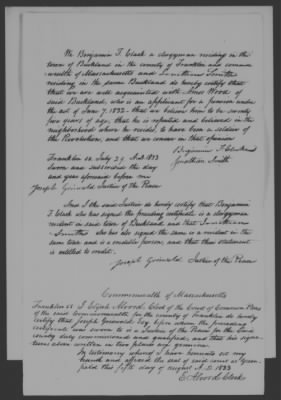 We Benjamin F. Clark a clergyman residing in the
town of Buckland in the county of Franklin and common
wealth of Massachusetts and Jonathan Smith
residing in the same Buckland do hereby certify that
that we are well acquainted with Amos Wood of
said Buckland, who is an applicant for a pension under
the act of June 7, 1832 - that we believe him to be seventy
five years of age, that he is reputed and believed in the
neighborhood where he resides, to have been a soldier of
the Revolution, and that we concur in that opinion
Benjamin F. Clark
Jonathan Smith
Franklin ss. July 29 A.D. 1833
Sworn and subscribed the day
and year aforesaid before me
Joseph Griswold Justice of the Peace
And I the said Justice do hereby certify that Benjamin
F. Clark who has signed the preceding certificate is a clergyman
resident in said town of Buckland and that Jonathan
Smith who has also signed the same is a resident in the
same town and is a credible person, and that their statement
is entitled to credit.
Joseph Griswold Justice of the Peace
Commonwealth of Massachusetts
Franklin ss I Elijah Alvord, Clerk of the Court of Common Pleas
of the said Commonwealth for the county of Franklin do hereby
certify that Joseph Griswold Esq. before whom the preceding
certificate was sworn to is a Justice of the Peace for the said
county duly commissioned and qualified, and that his signa-
tures above written in two places are genuine.
In testimony whereof I have hereunto set my
hand and affixed the seal of said court at Green-
field this fifth day of August A.D. 1833
E. Alvord Clerk